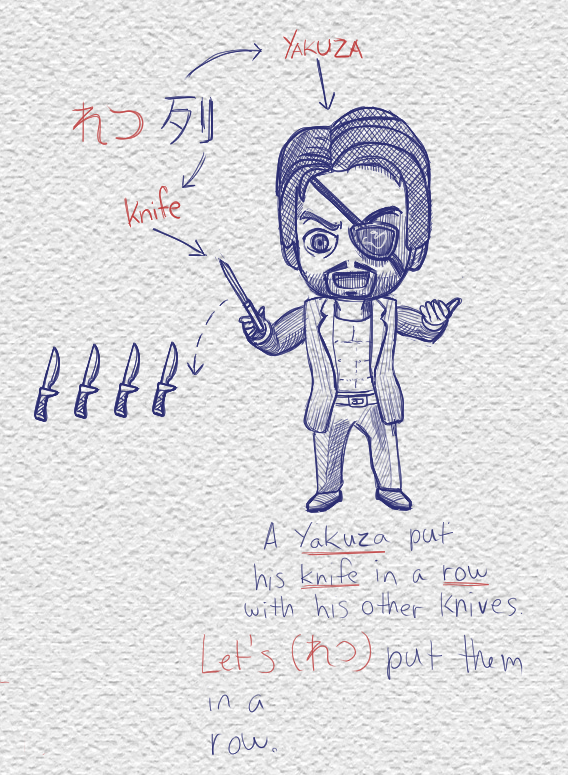 YAKUZA
れつ 列
Knife
A Yakuza put
his knife in a row
with his other knives.
Let's (れつ) put them
in a
row.